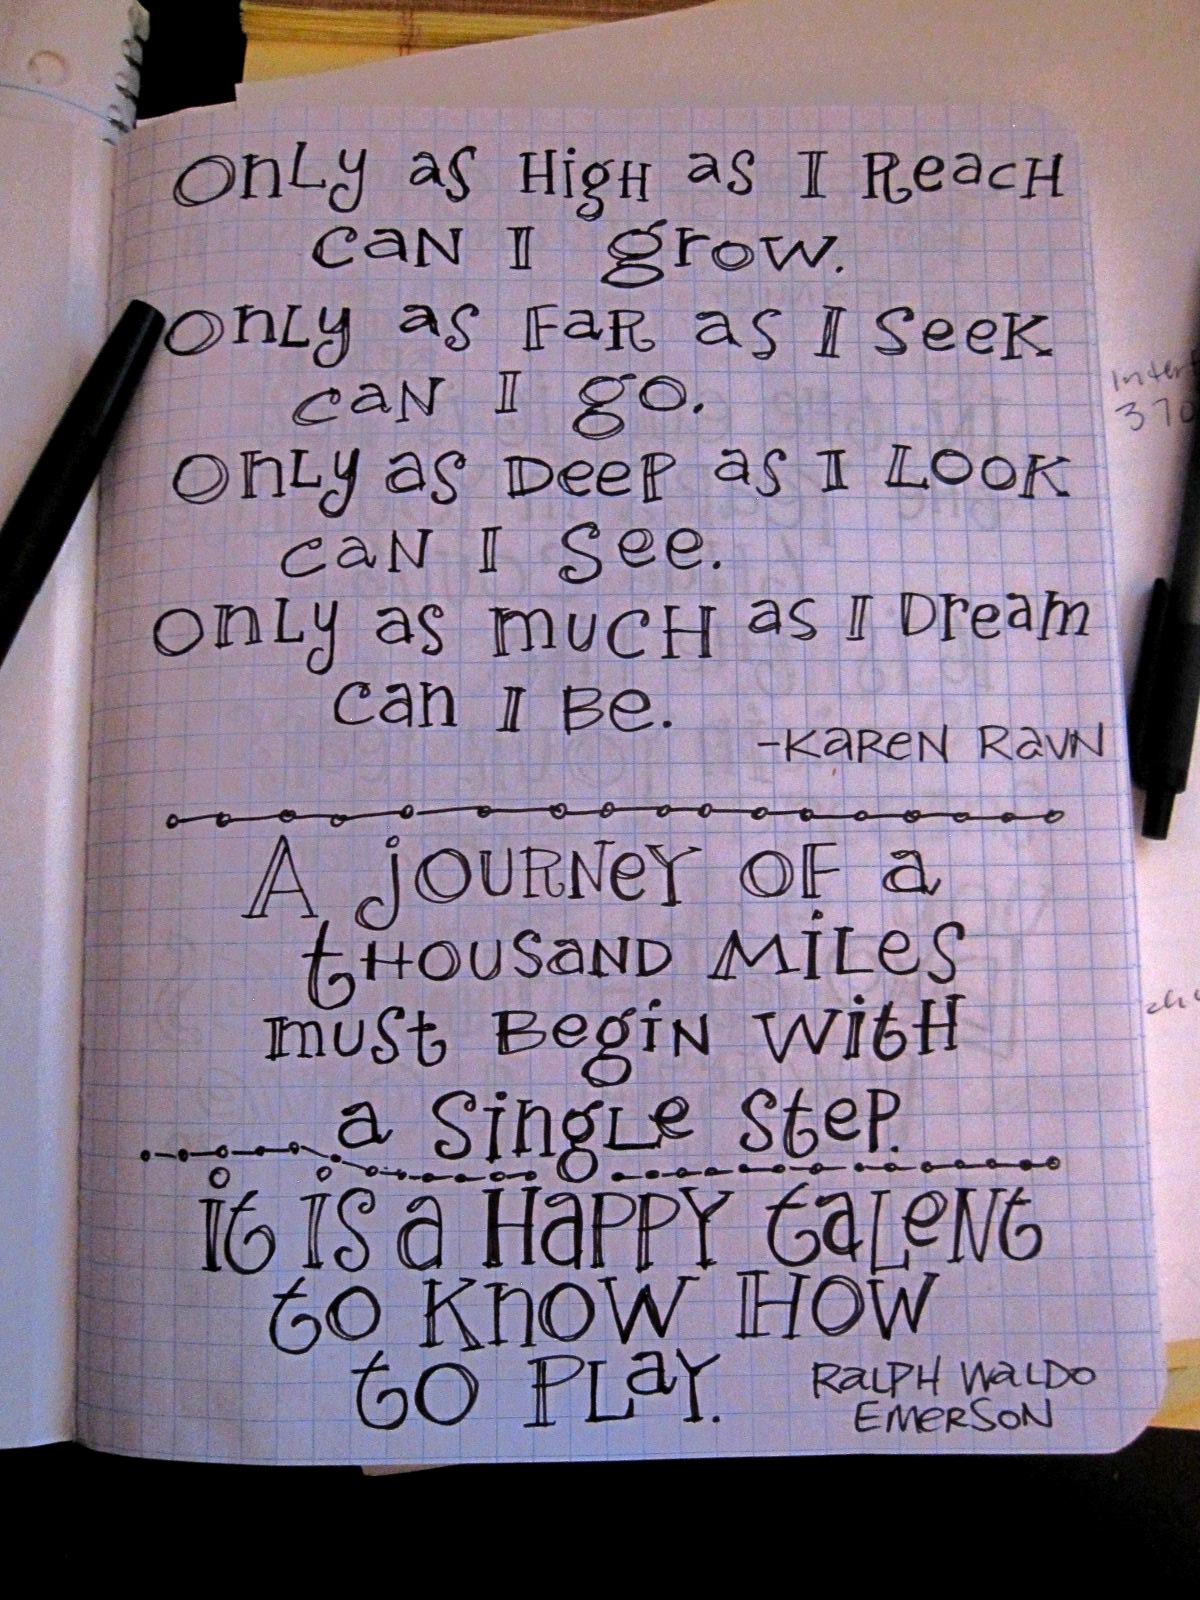 Only as High as I Reach
can I grow.
Only as Far as I Seek
can I go.
Only as Deep as I Look
can I See.
Only as much as I Dream
can I Be.
-Karen Ravn
A journey of a
thousand miles
must Begin with
a Single Step.
it is a Happy talent
to know How
to Play.
Ralph Waldo
Emerson